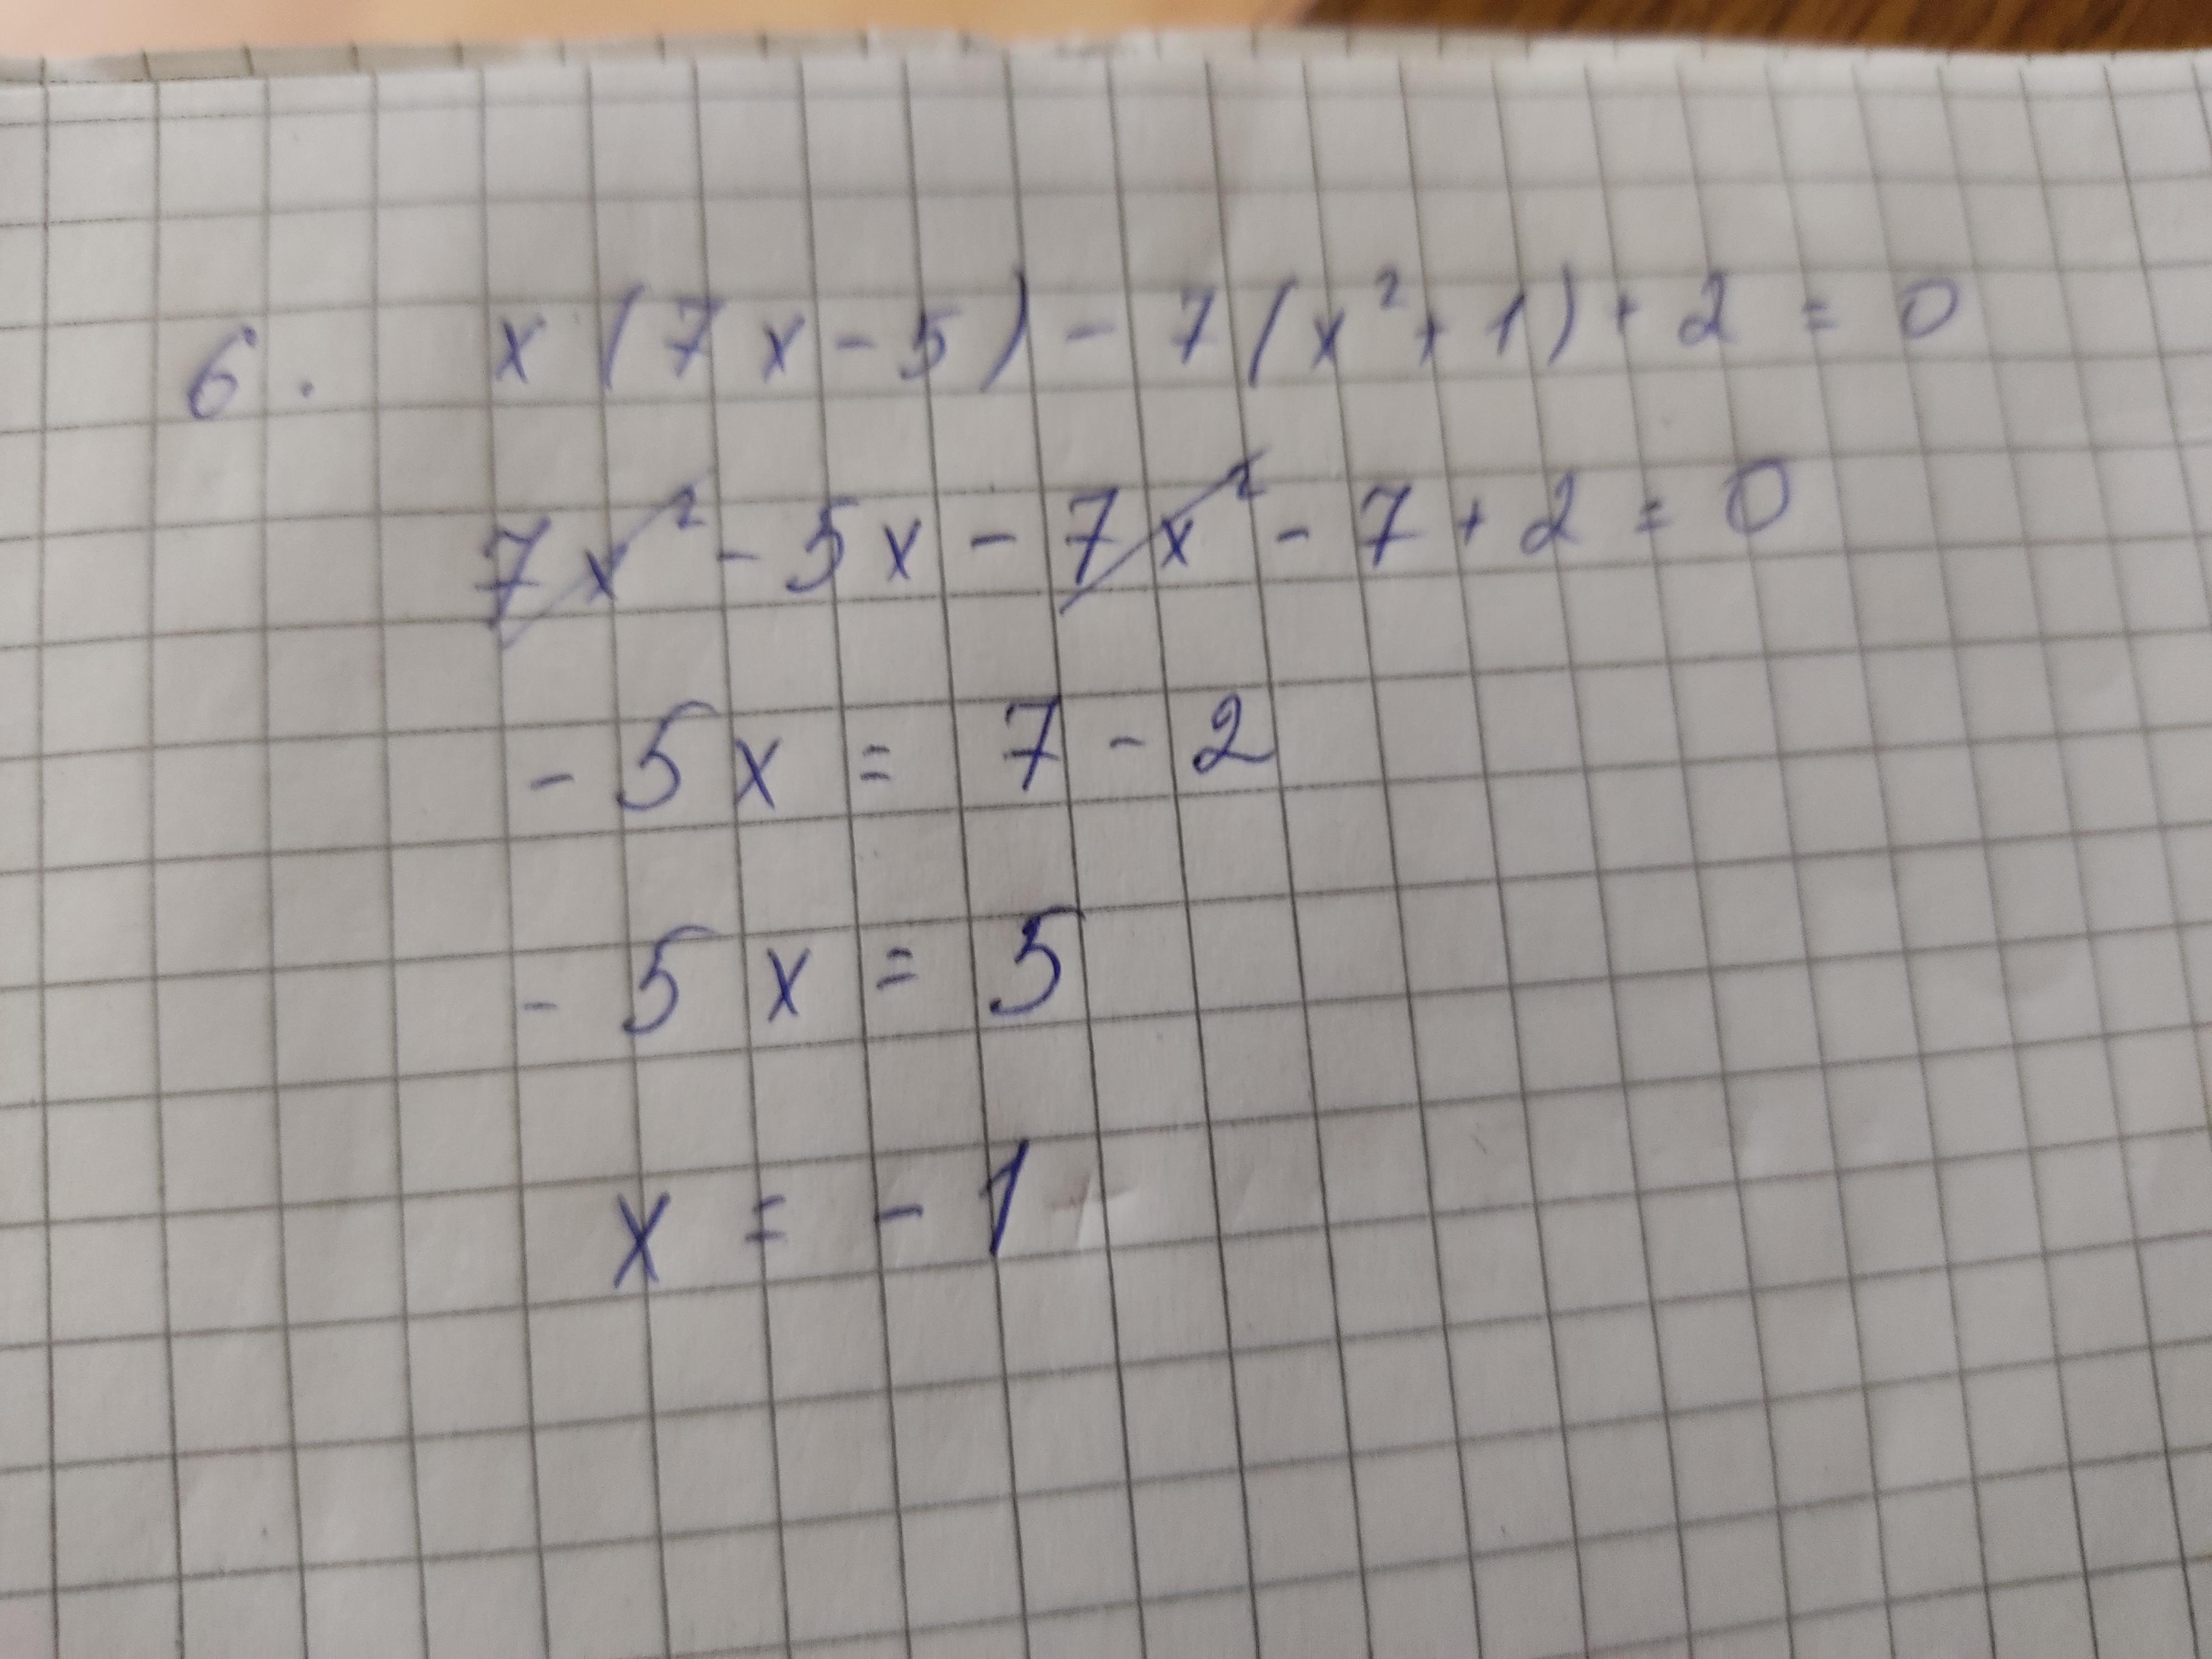 6. x(7x-5)-7(x²+1)+2=0
7x²-5x-7x²-7+2=0
-5x=7-2
-5x=5
x=-1